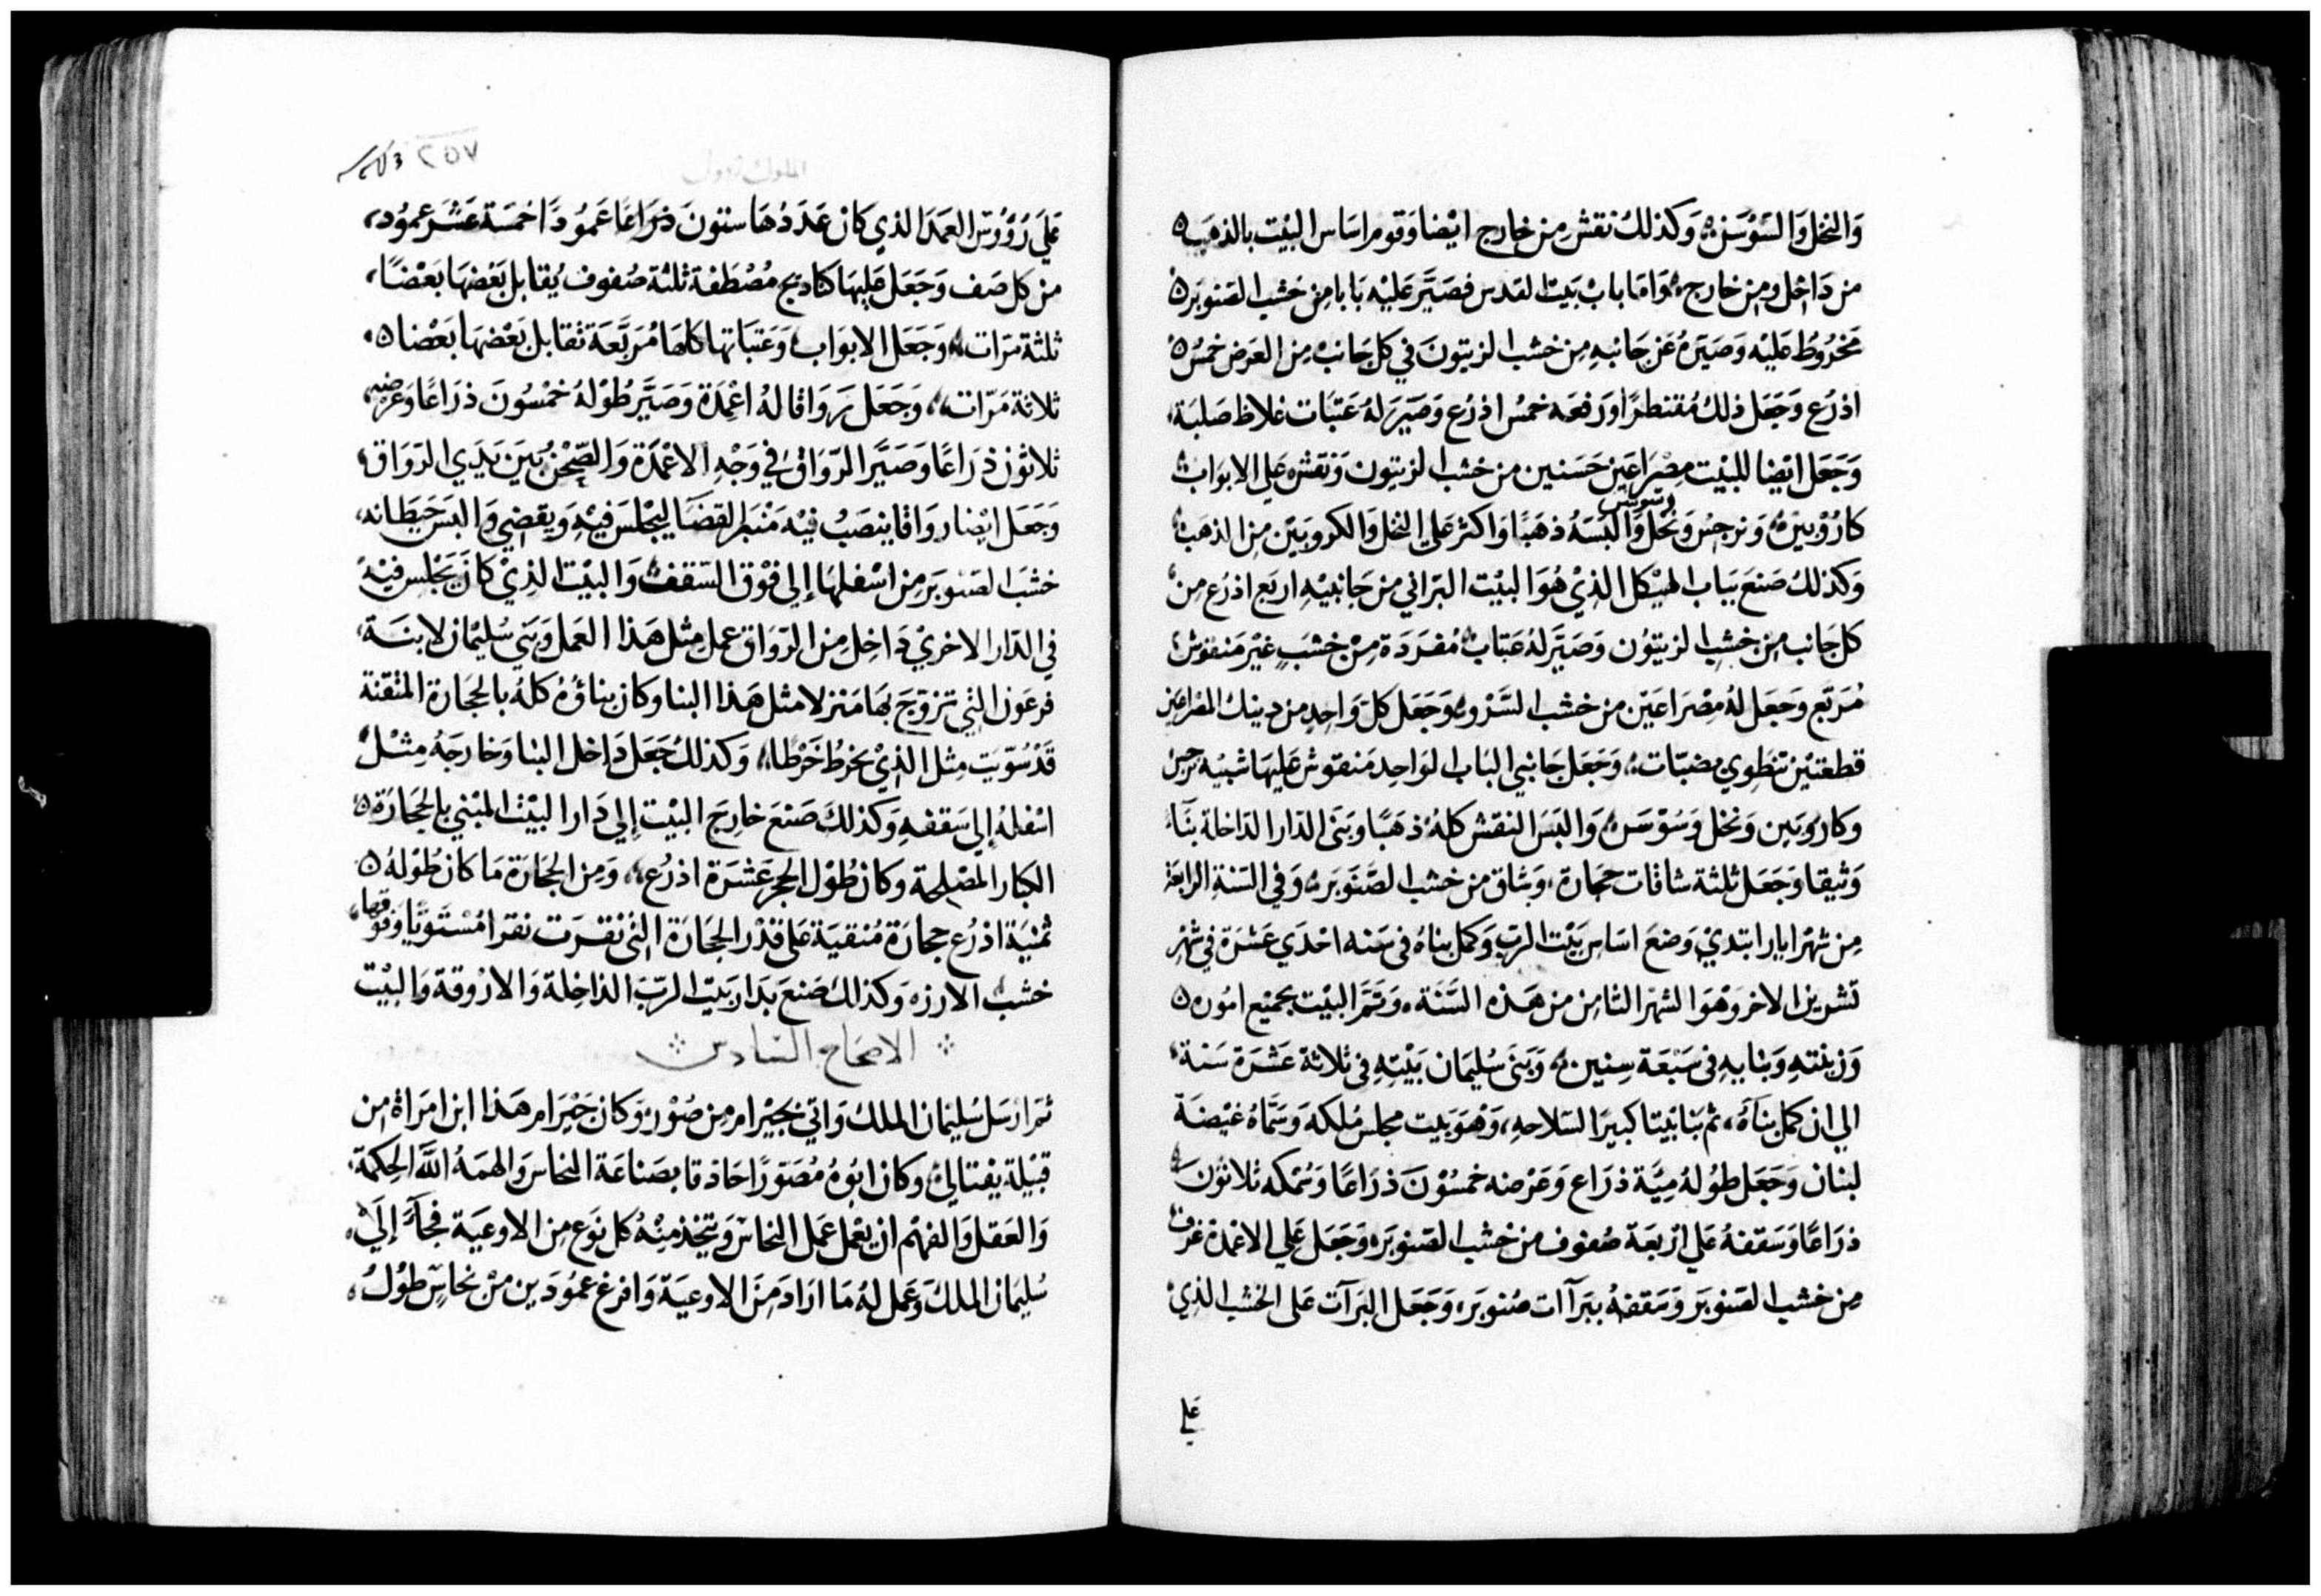 وَالنخل وَالسَوْسَن وَكذلك نقش مِن خارج ايْضا وَقوم اسَاس البيْت بالذهَب
من دَاخل ومِن خارج وَامَا باب بَيت القدس فصَيَّر عَليْه بَابا مِن خشب الصَنوبَر
مَخرُوُط عَليْه وَصَيَرهُ عَن جَانبهِ مِن خشب الزيتونَ في كل جَانب مِن العَرض خمسُ
اذرُع وَجَعَل ذلك مُقنطرًا وَرفعَه خمسُ اذرُع وَصَيّرَ لهُ عَتبَات غلاظ صَلبَة
وَجَعَل ايْضا للبيْت مِصْرَاعَين حَسَنين من خشب الزيتون وَنقش عَلي الابوَاب
كارُوْبيَن وَنرجس وَنخل وسوسن وَالبسَهُ ذهَبًا وَاكثر عَلي النخل وَالكروبيَن مِن الذهَب
وَكذلك صَنعَ بَباب الهيْكل الذِيْ هُوَ البيْت البَراني من جَانبيْهِ اربَع اذرُع مِن
كل جَانب مِن خشب الزيتوُن وَصَيَّر لهُ عَتابْ مُفرَدَة مِنْ خشَبٍ غيْر مَنقوش
مُرَبَّع وَجَعَل لهُ مِصْرَاعَيْن من خشب السَرْو وَجَعَل كلّ وَاحِدٍ من دينك المصْراعين
قطعَتيْن تنطَوِي بضبّات وَجَعَل جَانبي البَاب الوَاحِد مَنقوش عَليهَا شبيْه نرجس
وكاروبَين وَنخل وَسُوْسَن وَالبسَ النقش كلهُ ذهَبًا وَبَنَى الدار الدَاخلة بنَاءً
وَثيقا وَجَعَل ثلثة سَافات حِجَارة وَسَاق من خشب الصَنوبَر وَفي السَنةِ الرابعَة
مِن شهرْ ايار ابتديْ وَضعَ اسَاس بَيْت الربّ وَكمل بناهُ في سَنه احْدَي عَشرَة في شهْرِ
تشرين الاخر وَهْوَ الشهر الثامِن من هَذه السَّنَة وَتمَّ البيْت بجميْع اموُره
وَزينتهِ وَبنايهِ في سَبْعَة سِنين وَبَنَى سُليمَان بَيْتِهِ في ثلاثة عَشرَة سَنة
الي ان كمل بنآهُ ثم بَنا بَيْتا كبيرَا لسَلاحهِ وَهْوَ بَيت مجلس مُلكه وَسَمَّاهُ غيْضَة
لبنان وَجَعَل طوُلهُ مِيَّة ذرَاع وَعَرْضه خمسُوْنَ ذرَاعًا وَسُمْكه ثلاثوُنَ
ذرَاعًا وَسَقفهُ عَلي ارْبعَة صُفوف من خشب الصَنوبَر وَجَعَل عَلي الاعْمدة غرَف
مِن خشب الصَنوبَر وَسَقفهُ ببَرآات صُنوبَر وَجَعَل البَرَآت عَلى الخشب الذِيْ
عَلي
٢٥٧
الملوك الاول
عَلَى رُؤُوْسَ العَمَد الذي كان عَدَدُهَا ستونَ ذرَاعًا عَمُودًا خمسَة عَشرَ عموُد
من كل صَف وَجَعَل عَليهَا كناديج مُصْطَفة ثلثة صُفوف يُقابل بَعْضهَا بَعْضًا
ثلثة مرّات وَجَعَل الابوَاب وَعَتبَاتها كلهَا مُرَبَّعَة تقابل بَعْضهَا بَعْضا
ثلاثة مَرّات وَجَعَل رَوَاقا لهُ اعْمِدَة وَصَيَّر طوْلهُ خمْسُونَ ذرَاعًا وَعَرضه
ثلاثون ذرَاعًا وَصَيَّر الرّوَاق في وَجْهِ الاعْمدَة وَالصّحْن بَين يَدَي الروَاق
وَجَعَل ايْضا روَاقا ينصَبُ فيْه مَنْبر القضَا ليَجْلس فيْهِ وَيقضي وَالبَس حَيطانه
خشبَ الصَنوبَر مِن اسْفلهَا إلي فوْق السَقفْ وَالبيْت الذِيْ كانَ يَجْلس فيْهِ
في الدار الاخريْ دَاخِل مِن الروَاق عمل مِثل هَذا العَمل وَبَنَي سُليْمان لابنَة
فرعَون التي تزوَّجَ بهَا مَنزلا مثل هَذا البنا وكان بناؤهُ كلهُ بالحجَارة المتقنة
قدْ سُوّيت مِثل الذِيْ يخرط خَرْطا وَكذلك جَعَل دَاخل البنا وَخارجَهُ مِثل
اسْفلهُ إلي سَقفهِ وَكذلك صَنعَ خارِج البيْت إلي دَار البيْت المبْني بالحجَارَة
الكبار المصْلحة وكان طوُل الحجر عَشرَة اذرُع وَمِن الحجَارَة مَا كان طوْلهُ
ثمنيَة اذرُع حجارَة مُنقيَة عَلى قدْر الحجَارَة التي نقرَت نقرا مُسْتَويًا وَفوْقها
خشب الارز وَكذلك صَنعَ بَدَار بَيت الربّ الدَاخِلة وَالارْوقة وَالبيْت
الاصحاح السَادس
ثم ارسَل سُليمَان الملك وَاتي بحيْرَام مِن صُوْر وَكان حَيْرَام هَذا ابن امرَاة مِن
قبيْلة يفتالي وكان ابُوهُ مُصَوّرًا حَاذقا بصَناعَة النحاس وَالهمَهُ اللَّه الحِكمة
وَالعَقل وَالفهْم ان يعْمل عَمل النحاس وَيتخذ منْهُ كل نوَع مِن الاوعيَة فجآءَ إلَي
سُليمَان الملك وَعَمل لهُ مَا ارَادَ مِنَ الاوعيَة وَافرغ عمُوْدَين منْ نحاسٍ طوُل